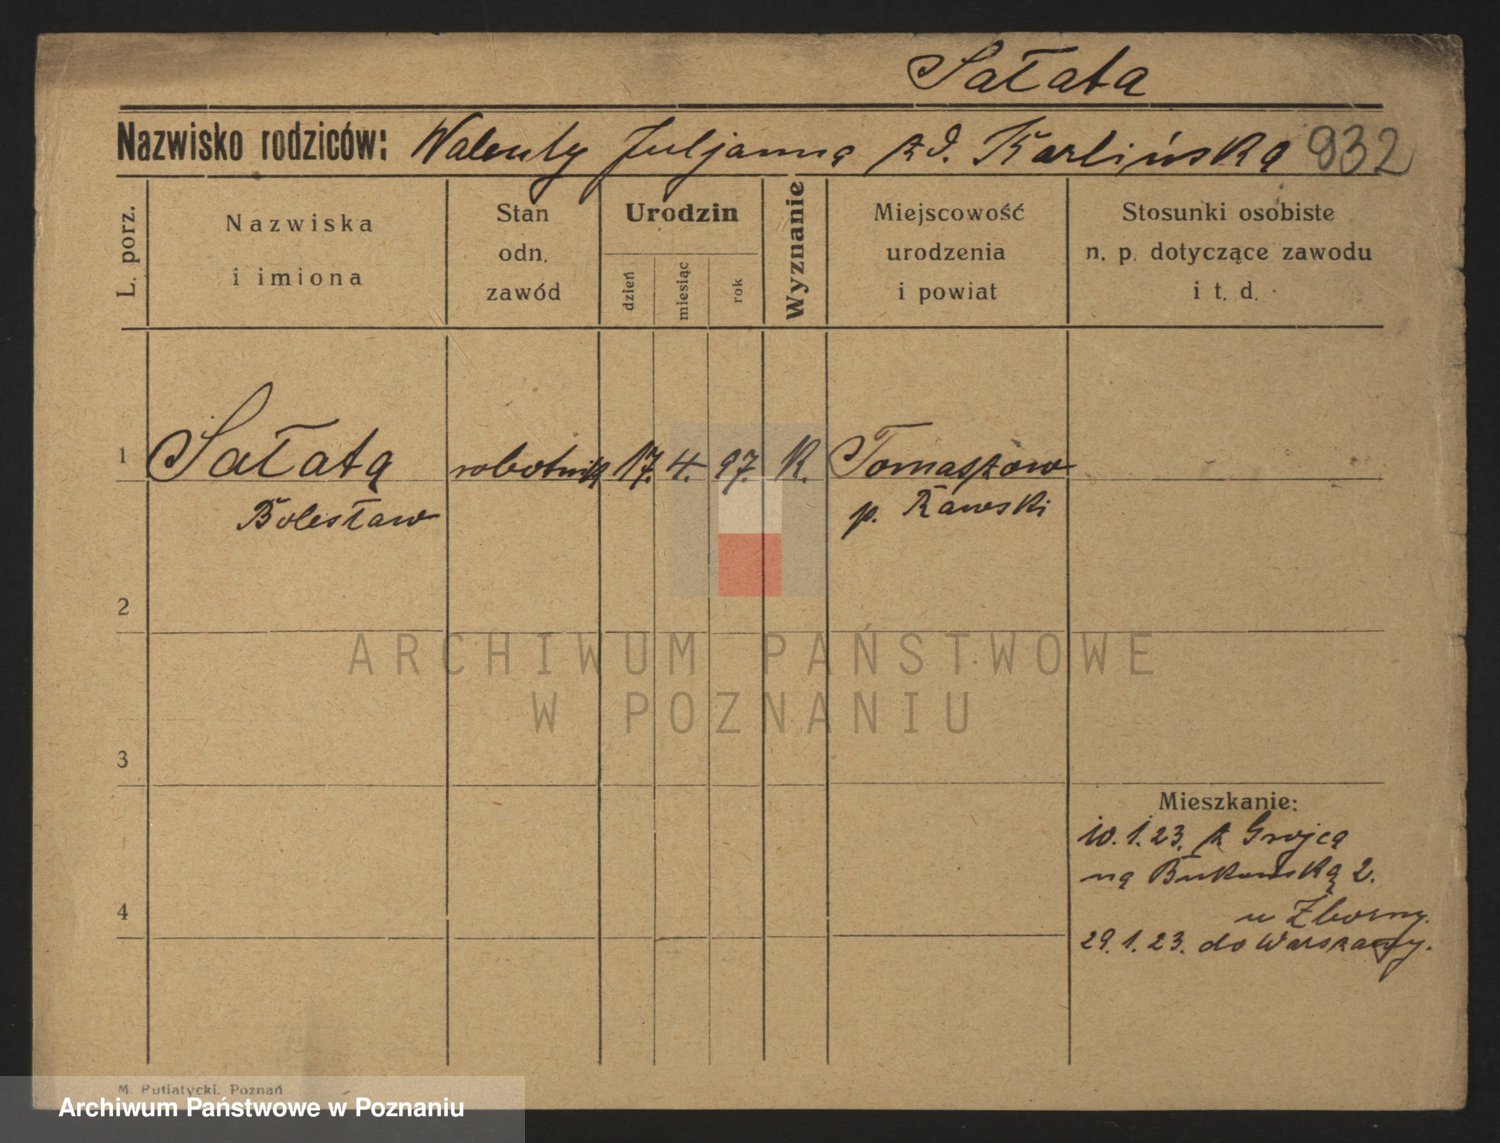 Sałata
Nazwisko rodziców: Walenty Juljanna zd. Karlińska 932
L. porz.
Nazwiska
i imiona
Stan
odn.
zawód
Urodzin
dzień
miesiąc
rok
Wyznanie
Miejscowość
urodzenia
i powiat
Stosunki osobiste
n. p. dotyczące zawodu
i t. d.
1 Sałata robotnik 17. 4. 97. K. Tomaszow
Bolesław p. Rawski
2
ARCHIWUM PAŃSTWOWE
W POZNANIU
3
Mieszkanie:
10.1.23. z Grojca
na Bukowską 2.
4
u Zborny.
29.1.23. do Warszawy.
M. Putiatycki, Poznań
Archiwum Państwowe w Poznaniu